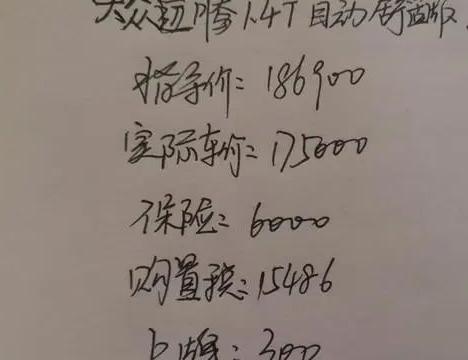 大众迈腾1.4T自动舒适版
指导价:186900
实际车价:175000
保险:6000
购置税:15486
上牌:300